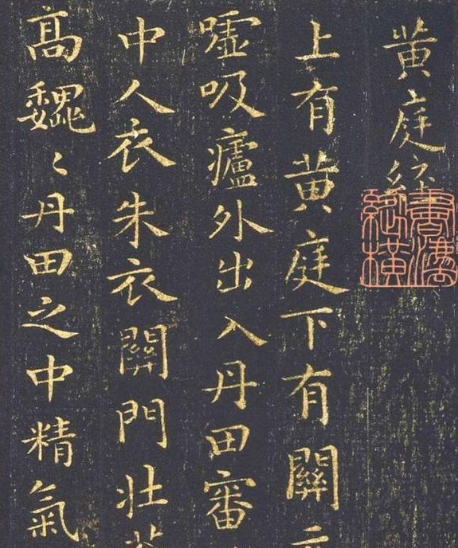 黄庭經
上有黄庭下有關
噓吸廬外出入丹田審
中人衣朱衣關門壯
高巍〻丹田之中精氣